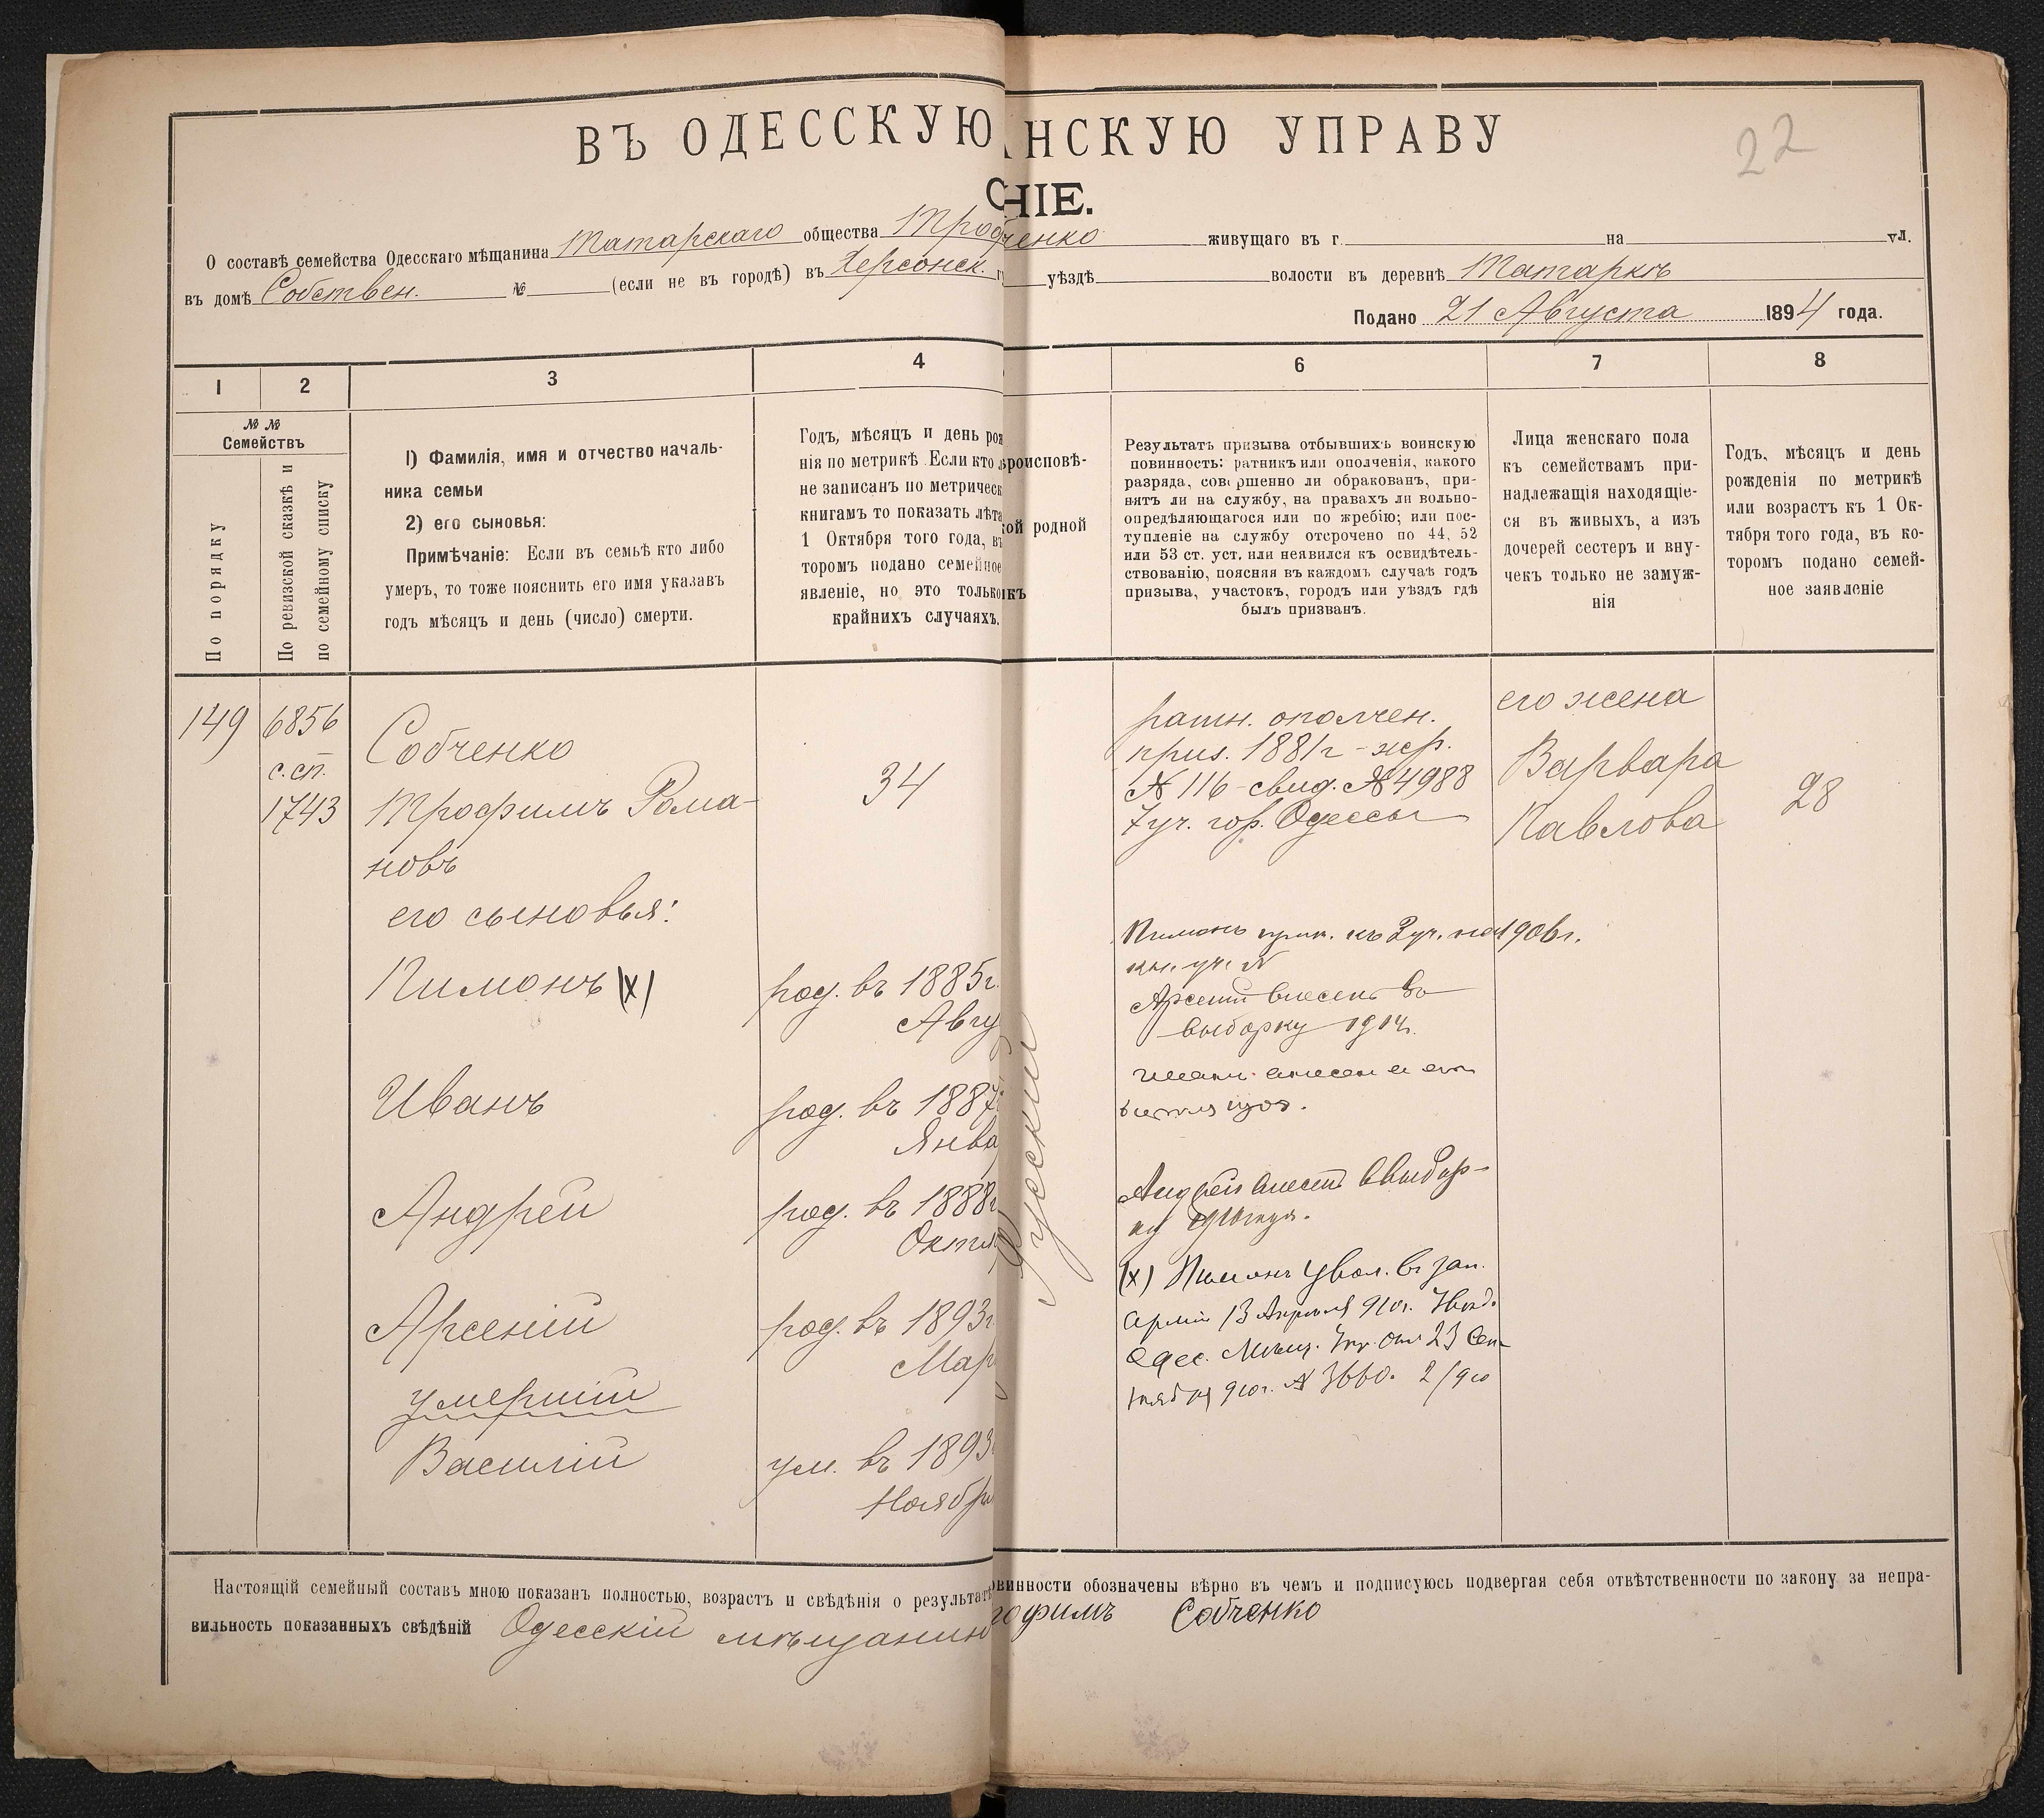 ВЪ ОДЕССКУЮ НСКУЮ УПРАВУ
22
НІЕ.
О составѣ семейства Одесскаго мѣщанина Татарскаго общества Троф ченко живущаго въ г. на ул.
въ домѣ Собствен. № (если не въ городѣ) въ Херсонск. г уѣздѣ волости въ деревнѣ Татаркѣ
Подано 21 Августа 1894 года.
1 2 3 4 6 7 8
№ №
Семействъ
По порядку
По ревизской сказкѣ и
по семейному списку
1) Фамилія, имя и отчество началь-
ника семьи
2) его сыновья:
Примѣчаніе: Если въ семьѣ кто либо
умеръ, то тоже пояснить его имя указавъ
годъ мѣсяцъ и день (число) смерти.
Годъ, мѣсяцъ и день рож
нія по метрикѣ Если кто л
не записанъ по метрическ
книгамъ то показать лѣта
1 Октября того года, въ
торомъ подано семейное
явленіе, но это только
крайнихъ случаяхъ.
роисповѣ-
ой родной
къ
Результатъ призыва отбывшихъ воинскую
повинность: ратникъ или ополченія, какого
разряда, совершенно ли обракованъ, при-
нятъ ли на службу, на правахъ ли вольно-
опредѣляющагося или по жребію; или пос-
тупленіе на службу отсрочено по 44, 52
или 53 ст. уст. или неявился къ освидѣтель-
ствованію, поясняя въ каждомъ случаѣ годъ
призыва, участокъ, городъ или уѣздъ гдѣ
былъ призванъ.
Лица женскаго пола
къ семействамъ при-
надлежащія находящіе-
ся въ живыхъ, а изъ
дочерей сестеръ и вну-
чекъ только не замуж-
нія
Годъ, мѣсяцъ и день
рожденія по метрикѣ
или возрастъ къ 1 Ок-
тября того года, въ ко-
торомъ подано семей-
ное заявленіе
149
6856
с. сп.
1743
Собченко
Трофимъ Рома-
новъ
34
ратн. ополчен.
приз. 1881 г - жр.
№ 116 - свид. № 4988
7 уч. гор. Одессы
его жена
Варвара
Павлова
28
его сыновья:
Пимонъ (х)
род. въ 1885 г.
Авгу
Пимонъ прип. къ 2 уч. на 1906 г.
Арсеній внесенъ во
выборку 1914 г.
Иванъ
род. въ 1887
Янва
Русскій
Андрей
род. въ 1888 г
Октя
Андрей внесенъ въ выбор-
ку
(х) Пимонъ увол. въ зап.
арміи 13 Апрѣля 910 г. Увѣд.
Одес. Мѣщ. Упр. отъ 23 Сен-
тября 910 г. № 3660. 2/910
Арсеній
род. въ 1893 г
Мар
умершій
Василій
ум. въ 1893
Ноябр
Настоящій семейный составъ мною показанъ полностью, возрастъ и свѣдѣнія о результатѣ овинности обозначены вѣрно въ чемъ и подписуюсь подвергая себя отвѣтственности по закону за непра-
вильность показанныхъ свѣдѣній Одесскій мѣщанин офимъ Собченко